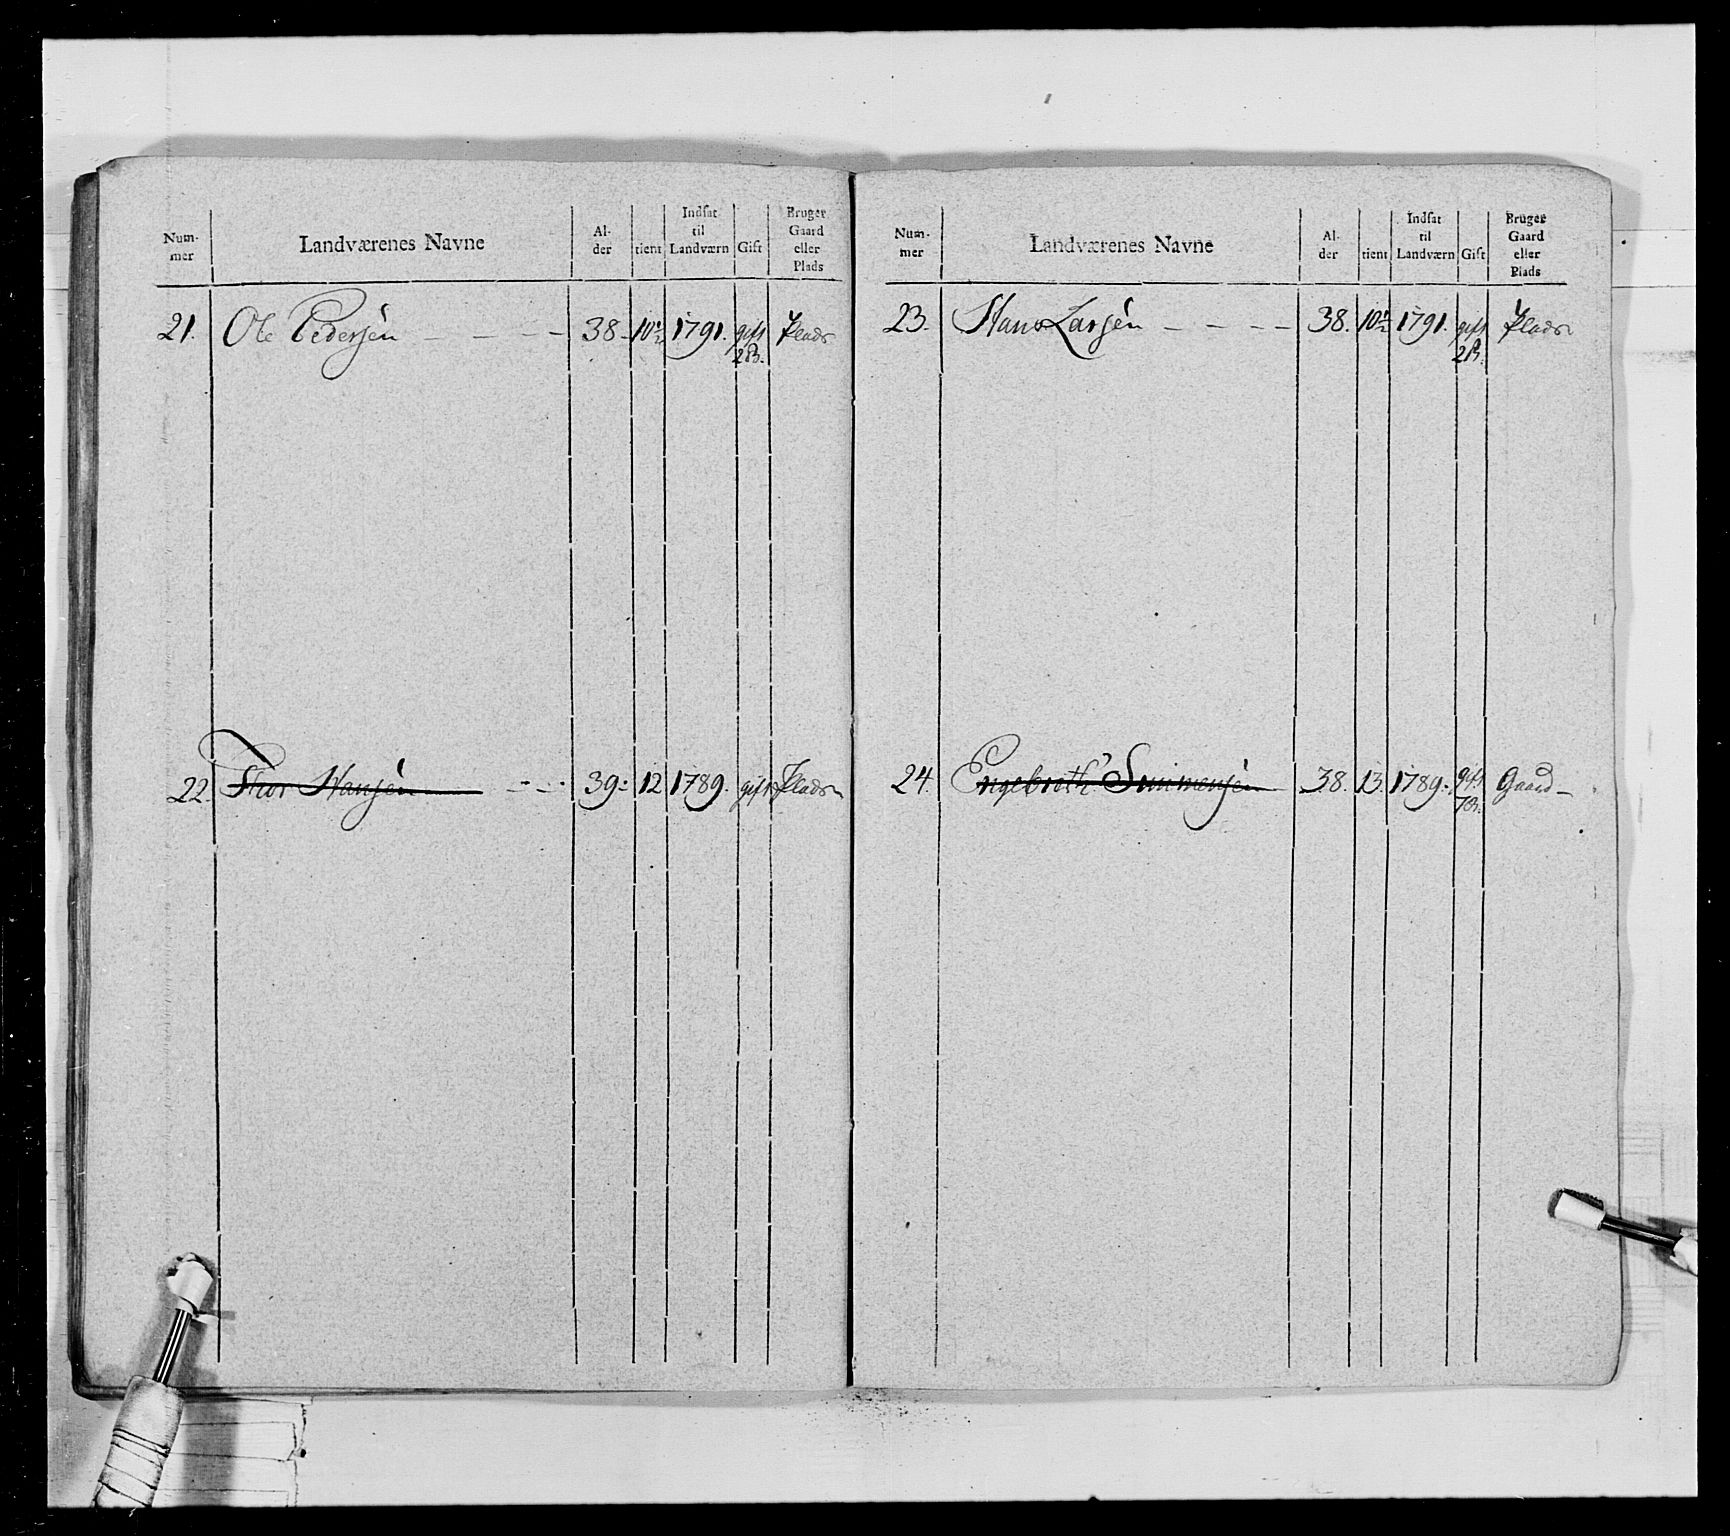 Num-
mer
Landværenes Navne
Al-
der
tient
Indsat
til
Landværn
Gift
Bruger
Gaard
eller
Plads
21. Ole Pedersen - - - - 38 - 10½ 1791. gift Plads
2 B.
22. Thor Hansen - - - 39 - 12 1789. gift Plads
Num-
mer
Landværenes Navne
Al-
der
tient
Indsat
til
Landværn
Gift
Bruger
Gaard
eller
Plads
23. Hans Larsen - - - - 38. 10½ 1791. gift Plads
2 B.
24. Engebreth Simmensen 38. 13. 1789. gift Gaard -